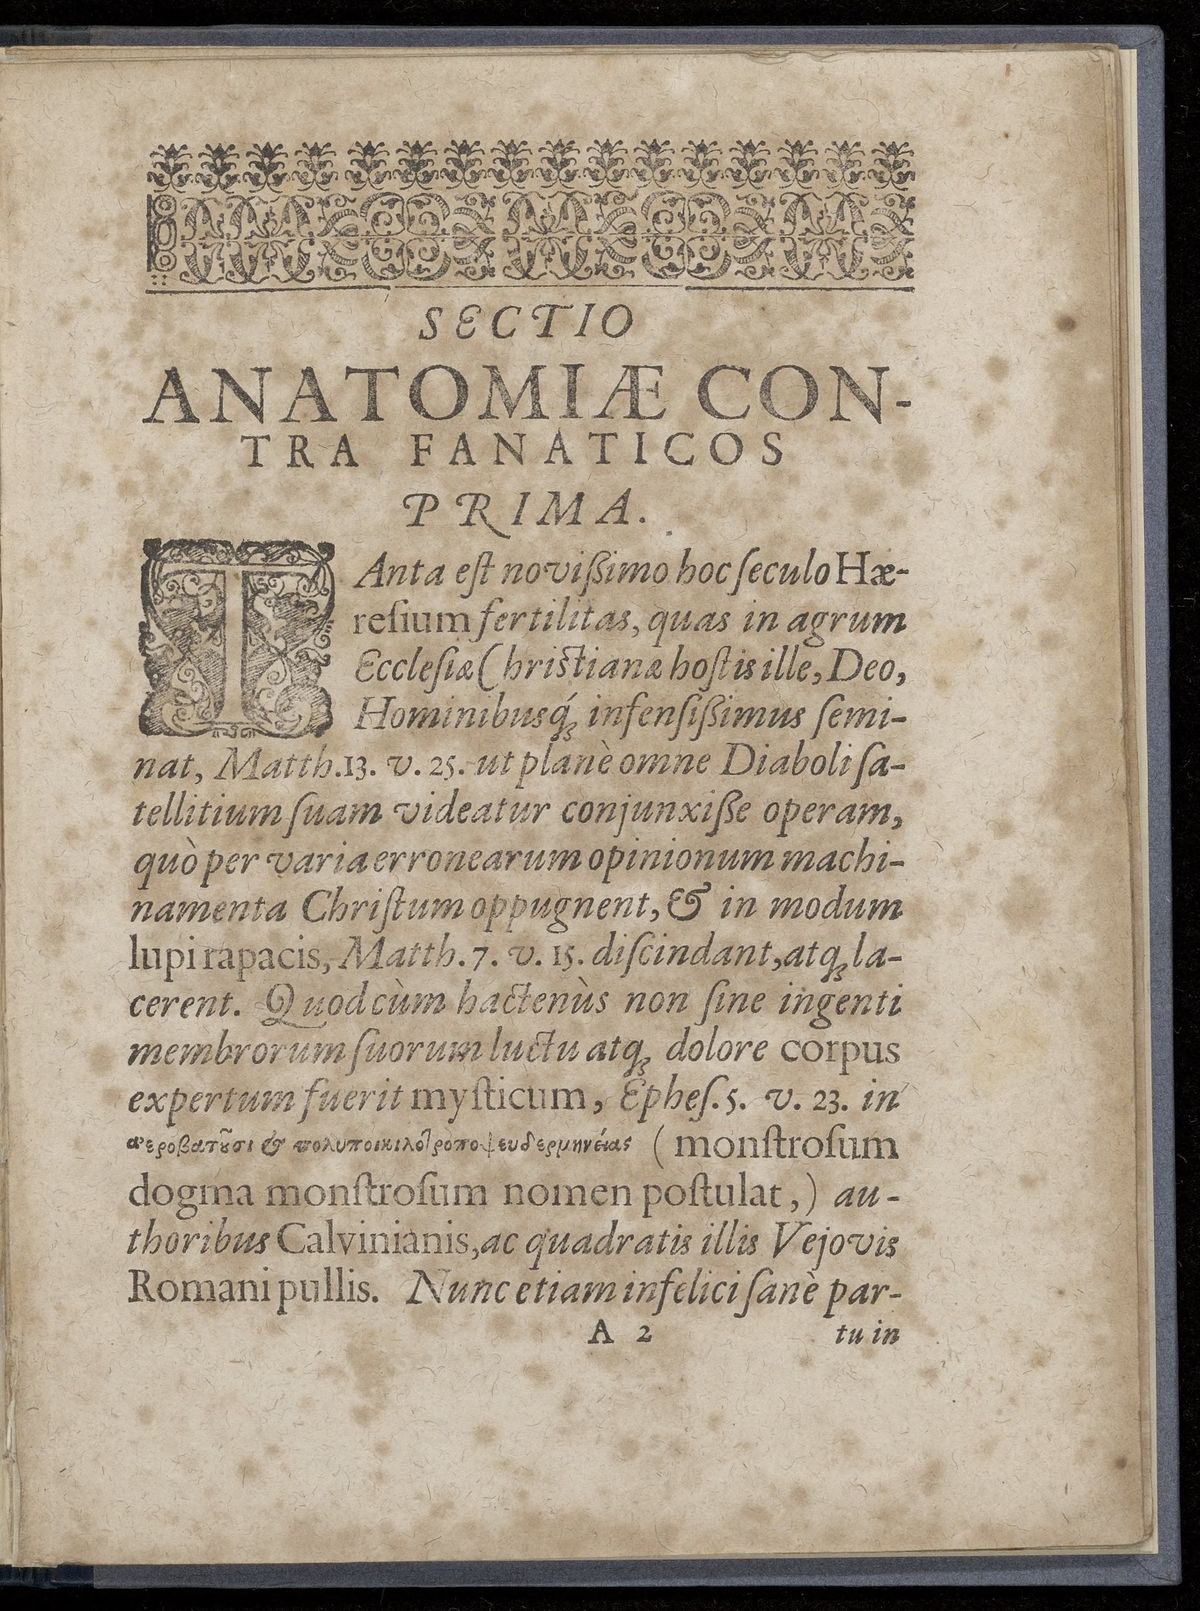 SECTIO
ANATOMIÆ CON-
TRA FANATICOS
PRIMA.
TAnta eſt noviſſimo hoc ſeculo Hæ-
reſium fertilitas, quas in agrum
Eccleſiæ Chriſtianæ hoſtis ille, Deo,
Hominibusq́; infenſiſſimus ſemi-
nat, Matth. 13. v. 25. ut planè omne Diaboli ſa-
tellitium ſuam videatur conjunxiſſe operam,
quò per varia erronearum opinionum machi-
namenta Chriſtum oppugnent, & in modum
lupi rapacis, Matth. 7. v. 15. diſcindant, atq; la-
cerent. Quod cùm hactenùs non ſine ingenti
membrorum ſuorum luctu atq; dolore corpus
expertum fuerit myſticum, Epheſ. 5. v. 23. in
ἀεροβατοῦσι & πολυποικιλοτροποψευδερμηνείας (monſtroſum
dogma monſtroſum nomen poſtulat,) au-
thoribus Calvinianis, ac quadratis illis Vejovis
Romani pullis. Nunc etiam infelici ſanè par-
A 2 tu in